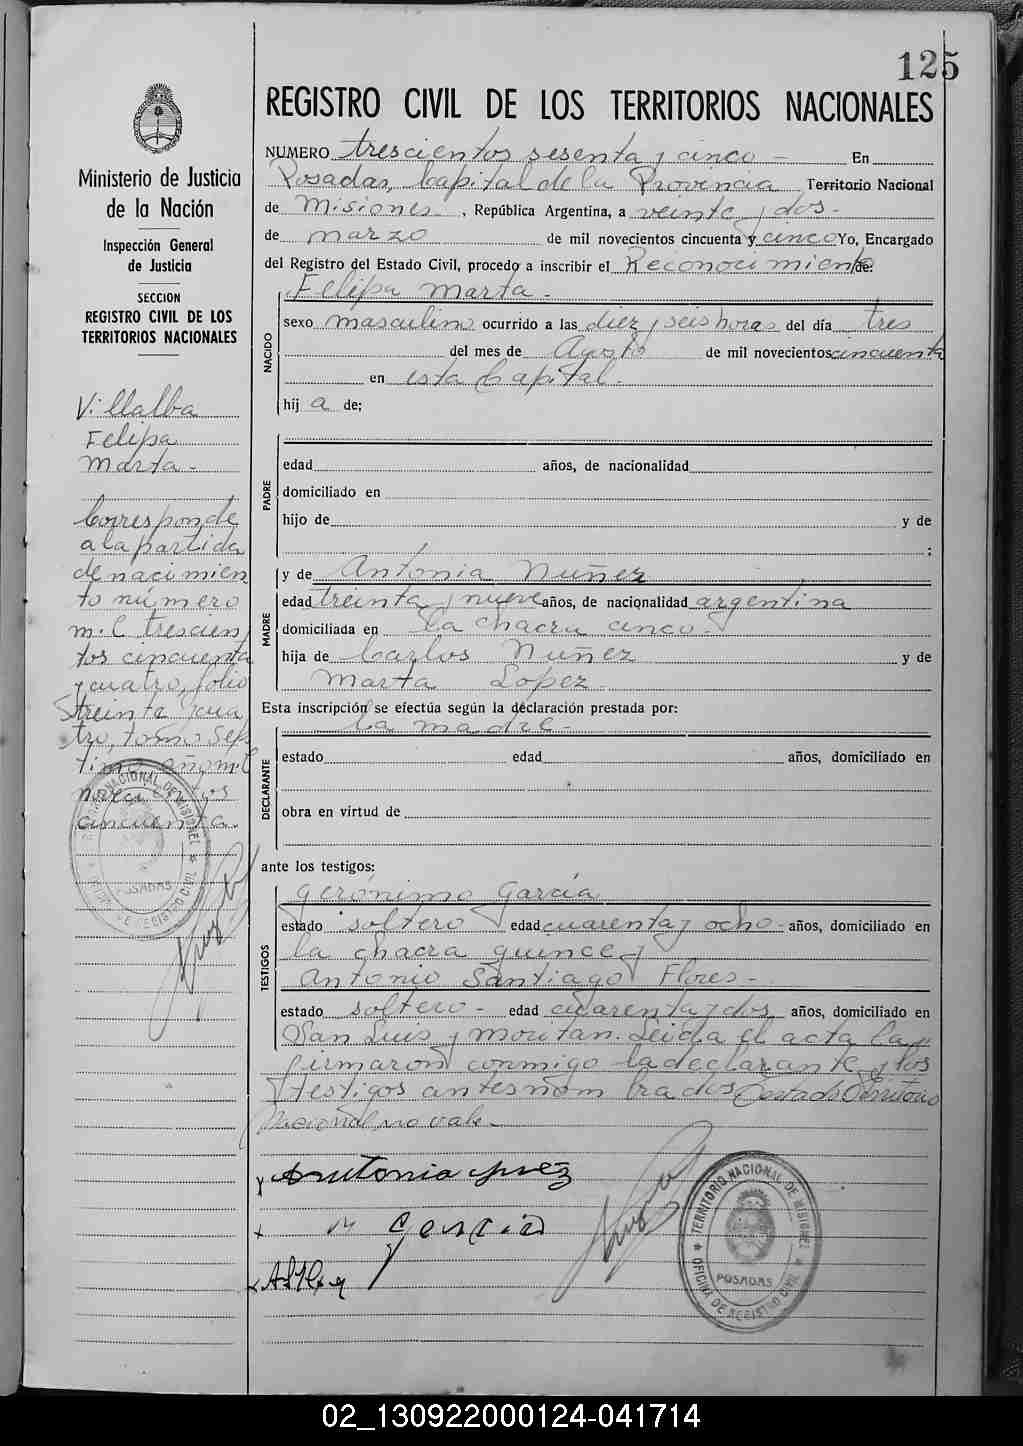 125
REGISTRO CIVIL DE LOS TERRITORIOS NACIONALES
Ministerio de Justicia
de la Nación
Inspección General
de Justicia
SECCION
REGISTRO CIVIL DE LOS
TERRITORIOS NACIONALES
Villalba
Felipa
Marta -
Corresponde
a la partida
de nacimien
to número
mil trescien
tos cincuenta
y cuatro, folio
treinta y cua
tro, tomo sép
timo año mil
novecientos
cincuenta.
NUMERO trescientos sesenta y cinco - En
Posadas, Capital de la Provincia Territorio Nacional
de Misiones , República Argentina, a veinte y dos -
de marzo de mil novecientos cincuenta y cinco Yo, Encargado
del Registro del Estado Civil, procedo a inscribir el Reconocimiento de:
Felipa Marta -
NACIDO
sexo masculino ocurrido a las diez y seis horas del día tres
del mes de Agosto de mil novecientos cincuenta
en esta Capital -
hij a de:
PADRE
edad años, de nacionalidad
domiciliado en
hijo de y de
;
MADRE
y de Antonia Nuñez
edad treinta y nueve años, de nacionalidad argentina
domiciliada en la chacra cinco -
hija de Carlos Nuñez y de
Marta Lopez -
Esta inscripción se efectúa según la declaración prestada por:
la madre -
DECLARANTE
estado edad años, domiciliado en
obra en virtud de
ante los testigos:
TESTIGOS
Gerónimo García
estado soltero edad cuarenta y ocho - años, domiciliado en
la chacra quince y
Antonio Santiago Flores -
estado soltero - edad cuarenta y dos años, domiciliado en
San Luis y Moritan. Leida el acta la
firmaron conmigo la declarante y los
testigos antes nombrados Testado Territorio
Nacional no vale -
x Anutonia
x García
TERRITORIO NACIONAL DE MISIONES
POSADAS
OFICINA DE REGISTRO CIVIL
02_130922000124-041714